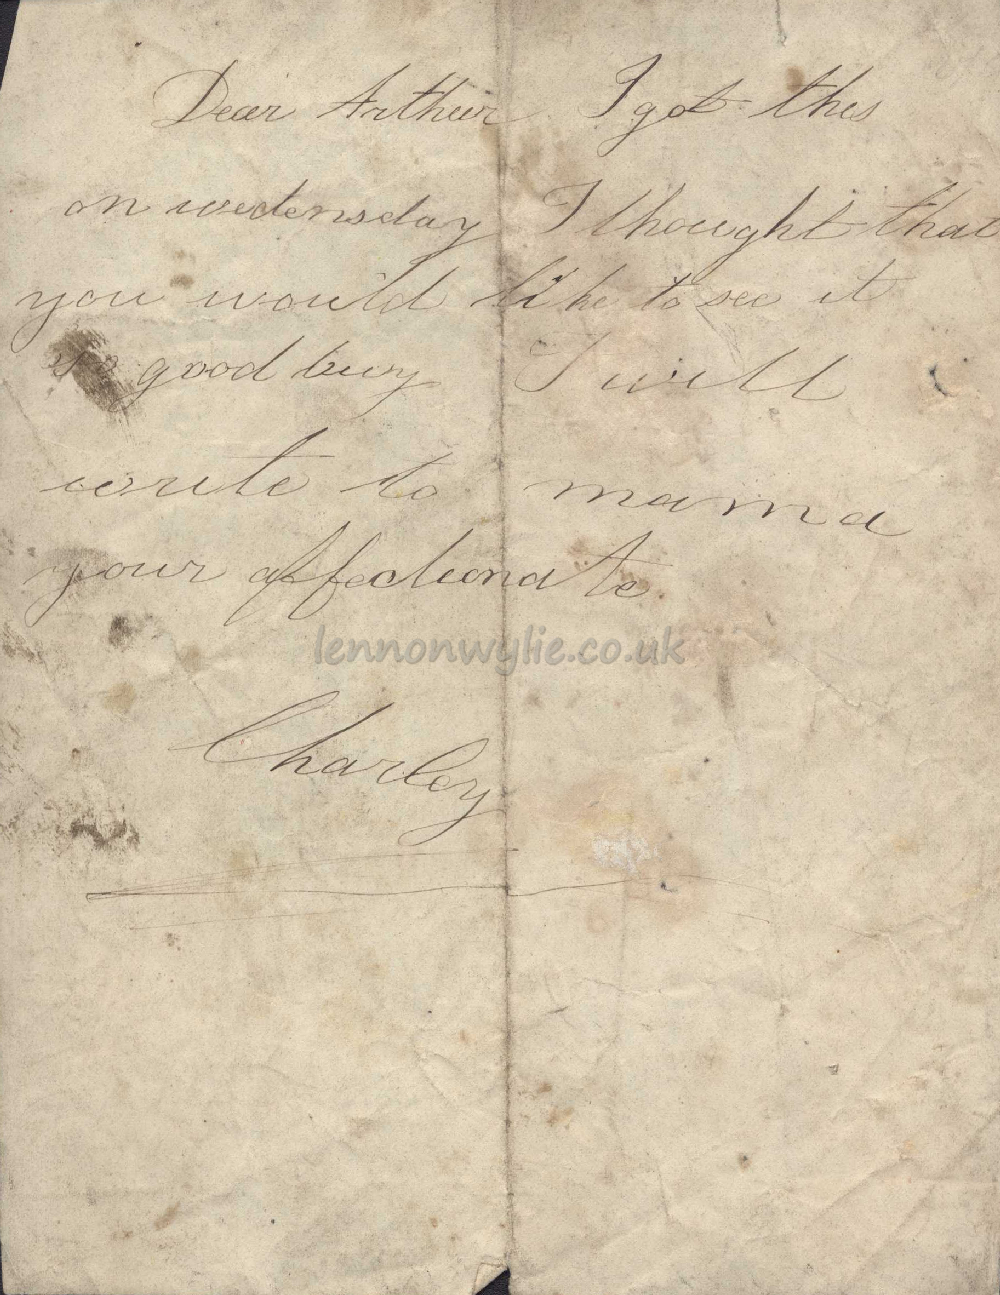 Dear Arthur I got this
on wedensday I thought that
you would like to see it
so good buy I will
write to mama
your affectionate
lennonwylie.co.uk
Charley